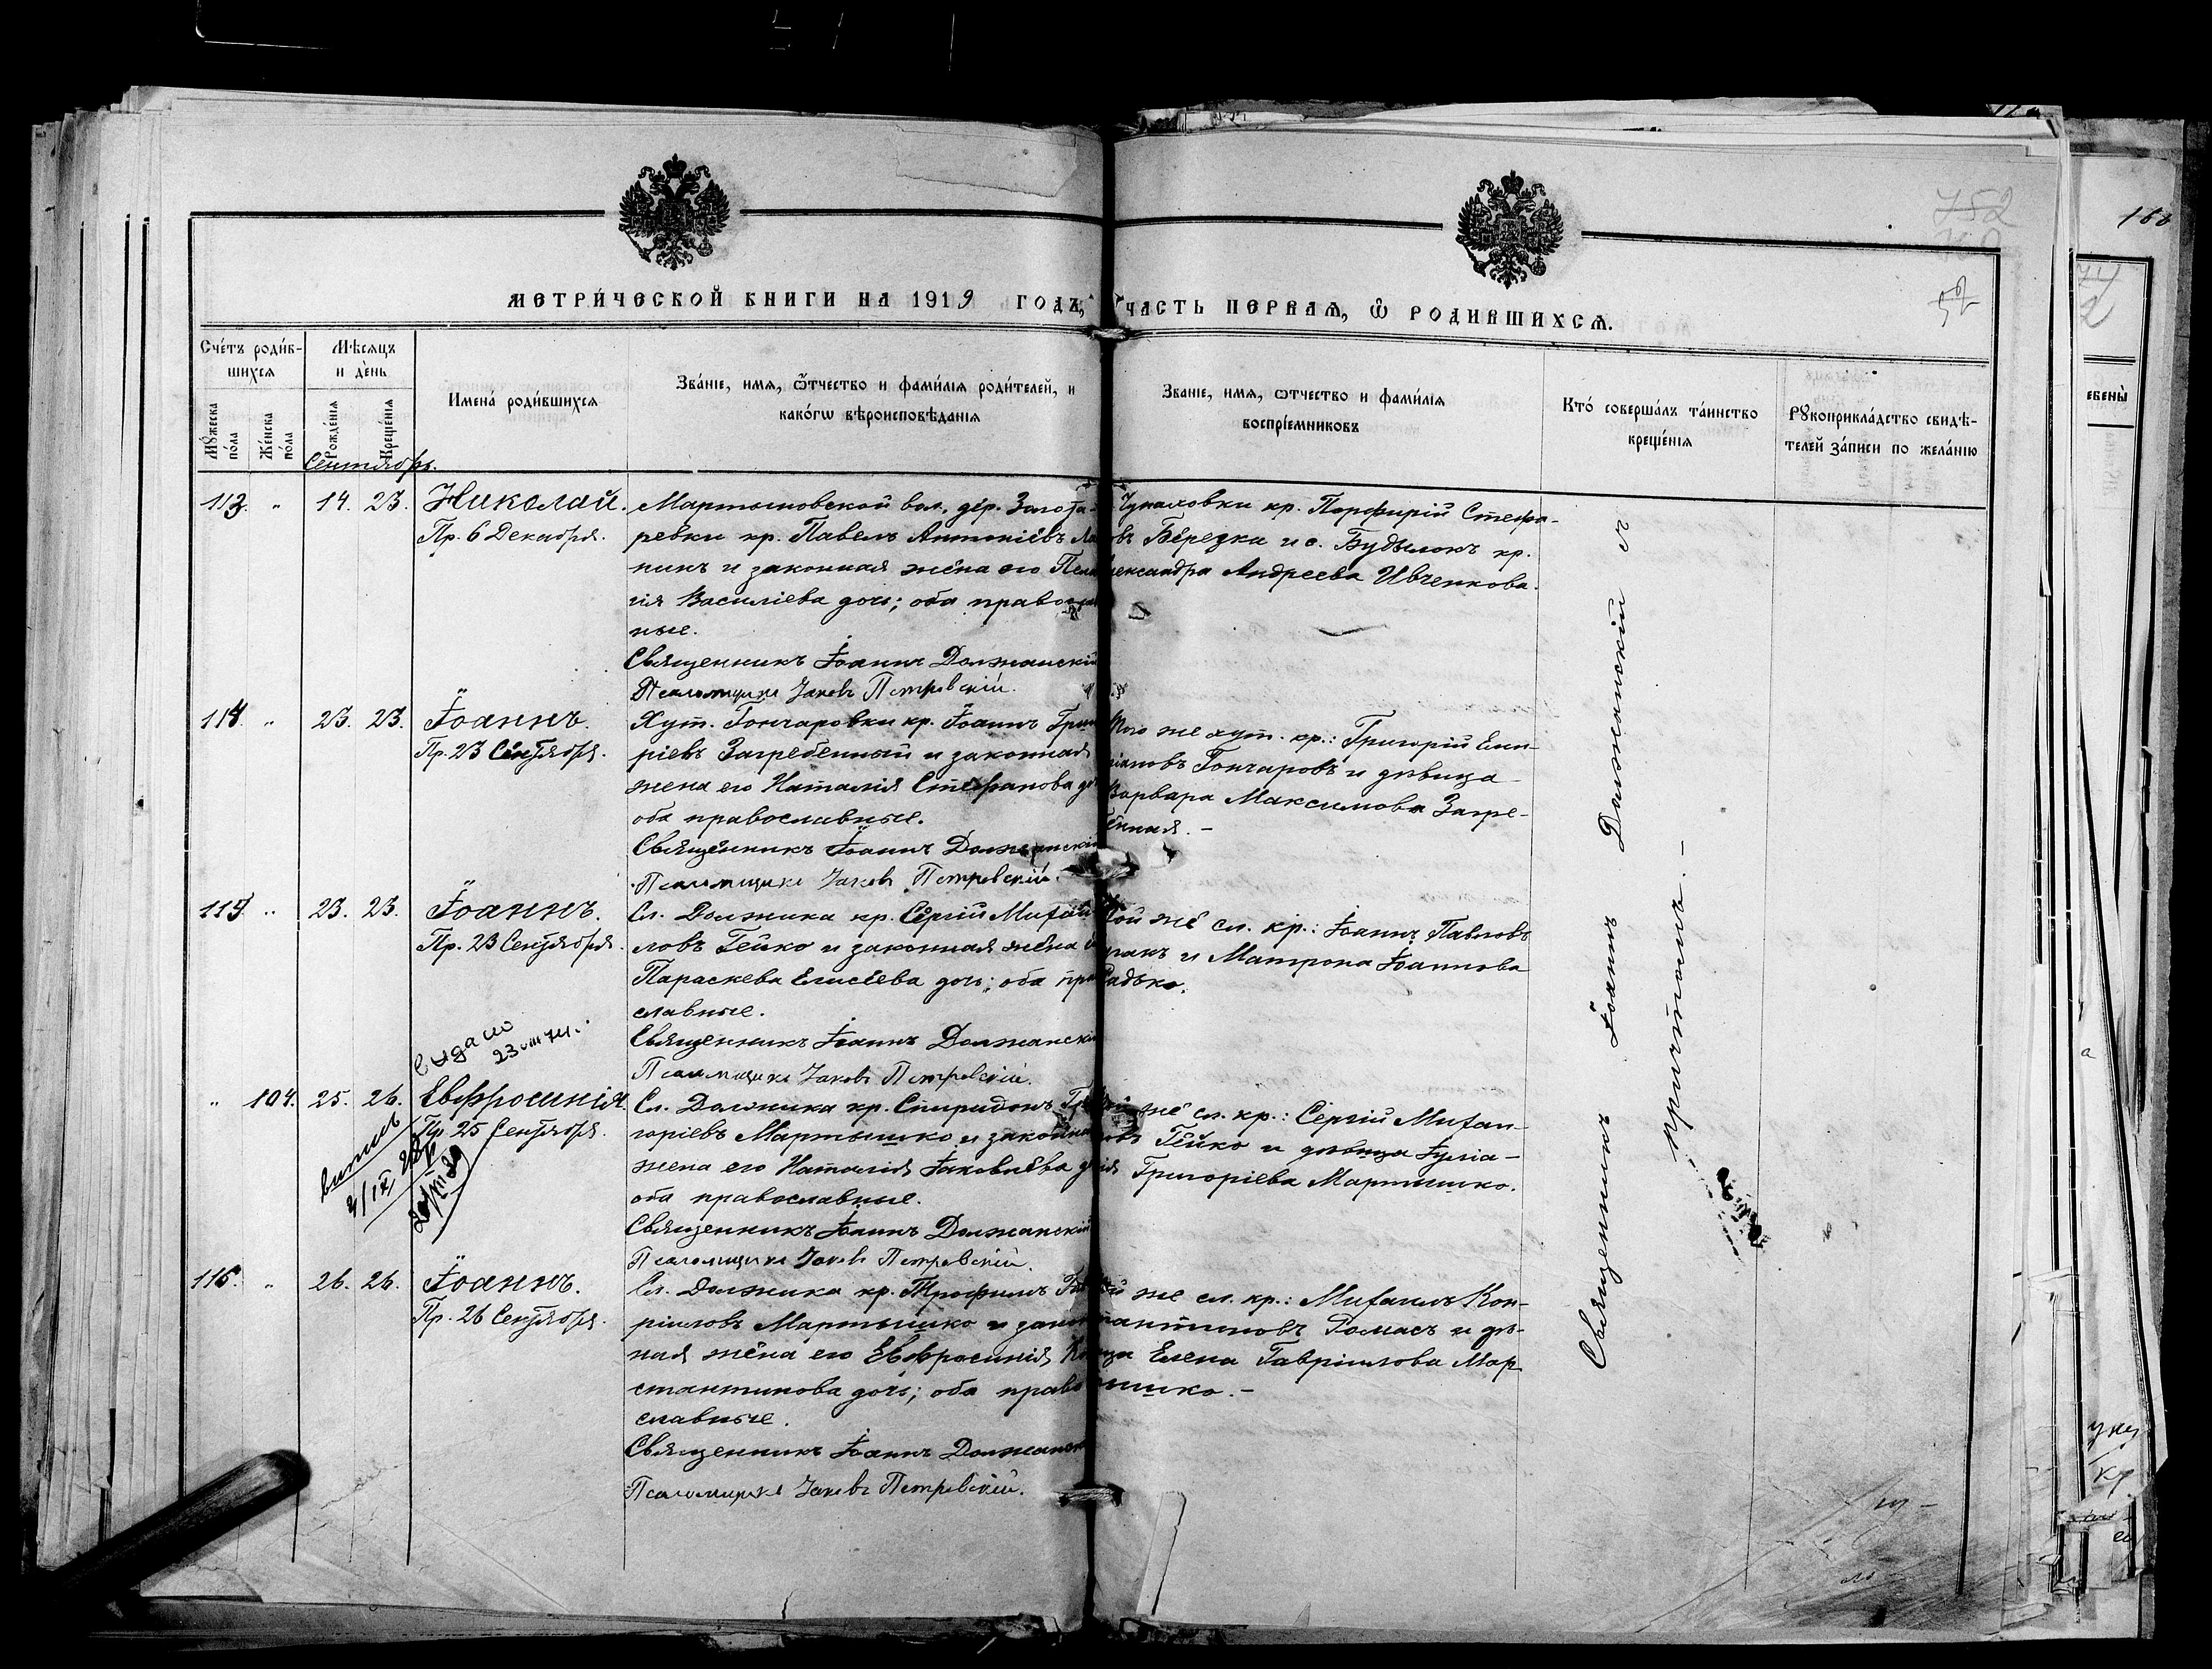 752
52
166
МЕТРИ́ЧЕСКОЙ КНИГИ НА 1919 ГОДЪ, ЧАСТЬ ПЕРВАЯ, Ѿ РОДИВШИХСЯ.
Сче́тъ роди́в-
шихся
Му́жеска по́ла
Же́нска по́ла
Мѣ́сяцъ
и де́нь
Рожде́нія
Креще́нія
Имена́ роди́вшихся
Зва́ніе, имя, ѻ́тчество и фами́лія роди́телей, и
како́гѡ вѣроисповѣ́данія
Званіе, имя, ѻтчество и фами́лія
воспріе́мниковъ
Кто́ соверша́лъ та́инство
креще́нія
Рꙋкоприкла́дство свидѣ́-
телей за́писи по жела́нію
Сентябрь.
113. " 14. 23. Николай.
Пр. 6 Декабря.
Мартыновской вол. дер. Золота-
ревки кр. Павелъ Антоніевъ
нинъ и законная жена его Пела
гія Василіева дочь; оба правосла
ные.
Священникъ Іоаннъ Должанскій
Псаломщикъ Іаковъ Петровскій.
Чупаховки кр. Порфирій Стефа-
овъ Березка и с. Будылокъ кр.
лександра Андреева Ивченкова.
114. " 23. 23. Іоаннъ.
Пр. 23 Сентября.
Хут. Гончаровки кр. Іоаннъ Григо
ріевъ Загребенный и законная
жена его Наталія Стефанова до
оба православные.
Священникъ Іоаннъ Должанскій
Псаломщикъ Іаковъ Петровскій.
того же хут. кр.: Григорій Еми-
ліановъ Гончаровъ и дѣвица
Варвара Максимова Загре-
енная. –
115. " 23. 23. Іоаннъ.
Пр. 23 Сентября.
Сл. Должика кр. Сергій Михаи
ловъ Гейко и законная жена е
Параскева Елисеева дочь; оба пра
славные.
Священникъ Іоаннъ Должанскій
Псаломщикъ Іаковъ Петровскій.
той же сл. кр.: Іоаннъ Павловъ
и Матрона Іоаннова
Радько.
23 VIII 74.
" 104. 25. 26. Евфросинія.
Пр. 25 Сентября.
Сл. Должика кр. Спиридонъ Гри
горіевъ Мартышко и законна
жена его Наталія Іаковлева до
оба православные.
Священникъ Іоаннъ Должанскій
Псаломщикъ Іаковъ Петровскій.
же сл. кр.: Сергій Михаи-
ловъ Гейко и дѣвица Іулиа-
нія Григоріева Мартышко.
116. " 26. 26. Іоаннъ.
Пр. 26 Сентября.
Сл. Должика кр. Трофимъ Гав
ріиловъ Мартышко и закон
ная жена его Евфросинія Ко
стантинова дочь; оба право
славные.
Священникъ Іоаннъ Должанск
Псаломщикъ Іаковъ Петровскій.
ой же сл. кр.: Михаилъ Кон-
стантиновъ Гомасъ и дѣ-
вица Елена Гавріилова Мар-
тышко. –
Священникъ Іоаннъ Должанскій съ
причтомъ. –